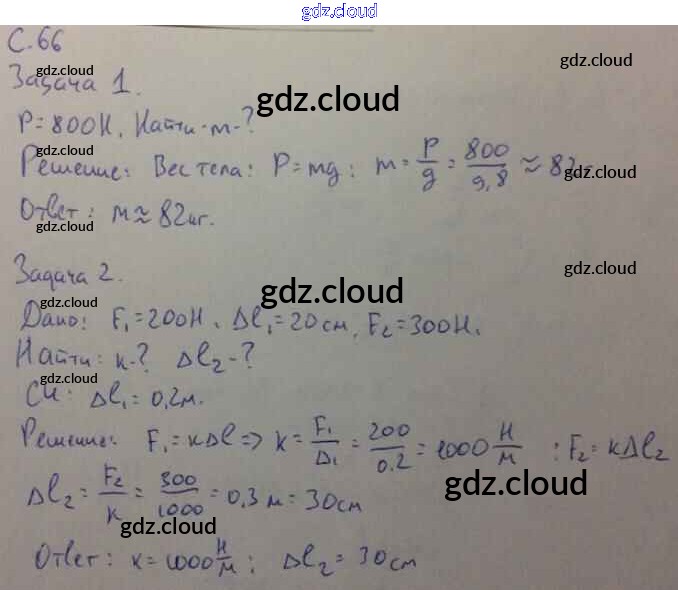 gdz.cloud
С.66
gdz.cloud
gdz.cloud
Задача 1.
gdz.cloud
P=800Н. Найти m-?
gdz.cloud
Решение: Вес тела: P=mg; m=P/g=800/9,8≈82
Ответ: m≈82кг.
gdz.cloud
Задача 2.
gdz.cloud
gdz.cloud
gdz.cloud
Дано: F₁=200Н, Δl₁=20см, F₂=300Н.
Найти: k-? Δl₂-?
gdz.cloud
СИ: Δl₁=0,2м.
Решение: F₁=kΔl=>k=F₁/Δ₁=200/0.2=1000 Н/м; F₂=kΔl₂
gdz.cloud
Δl₂=F₂/k=300/1000=0,3м=30см
gdz.cloud
Ответ: k=1000 Н/м; Δl₂=30см